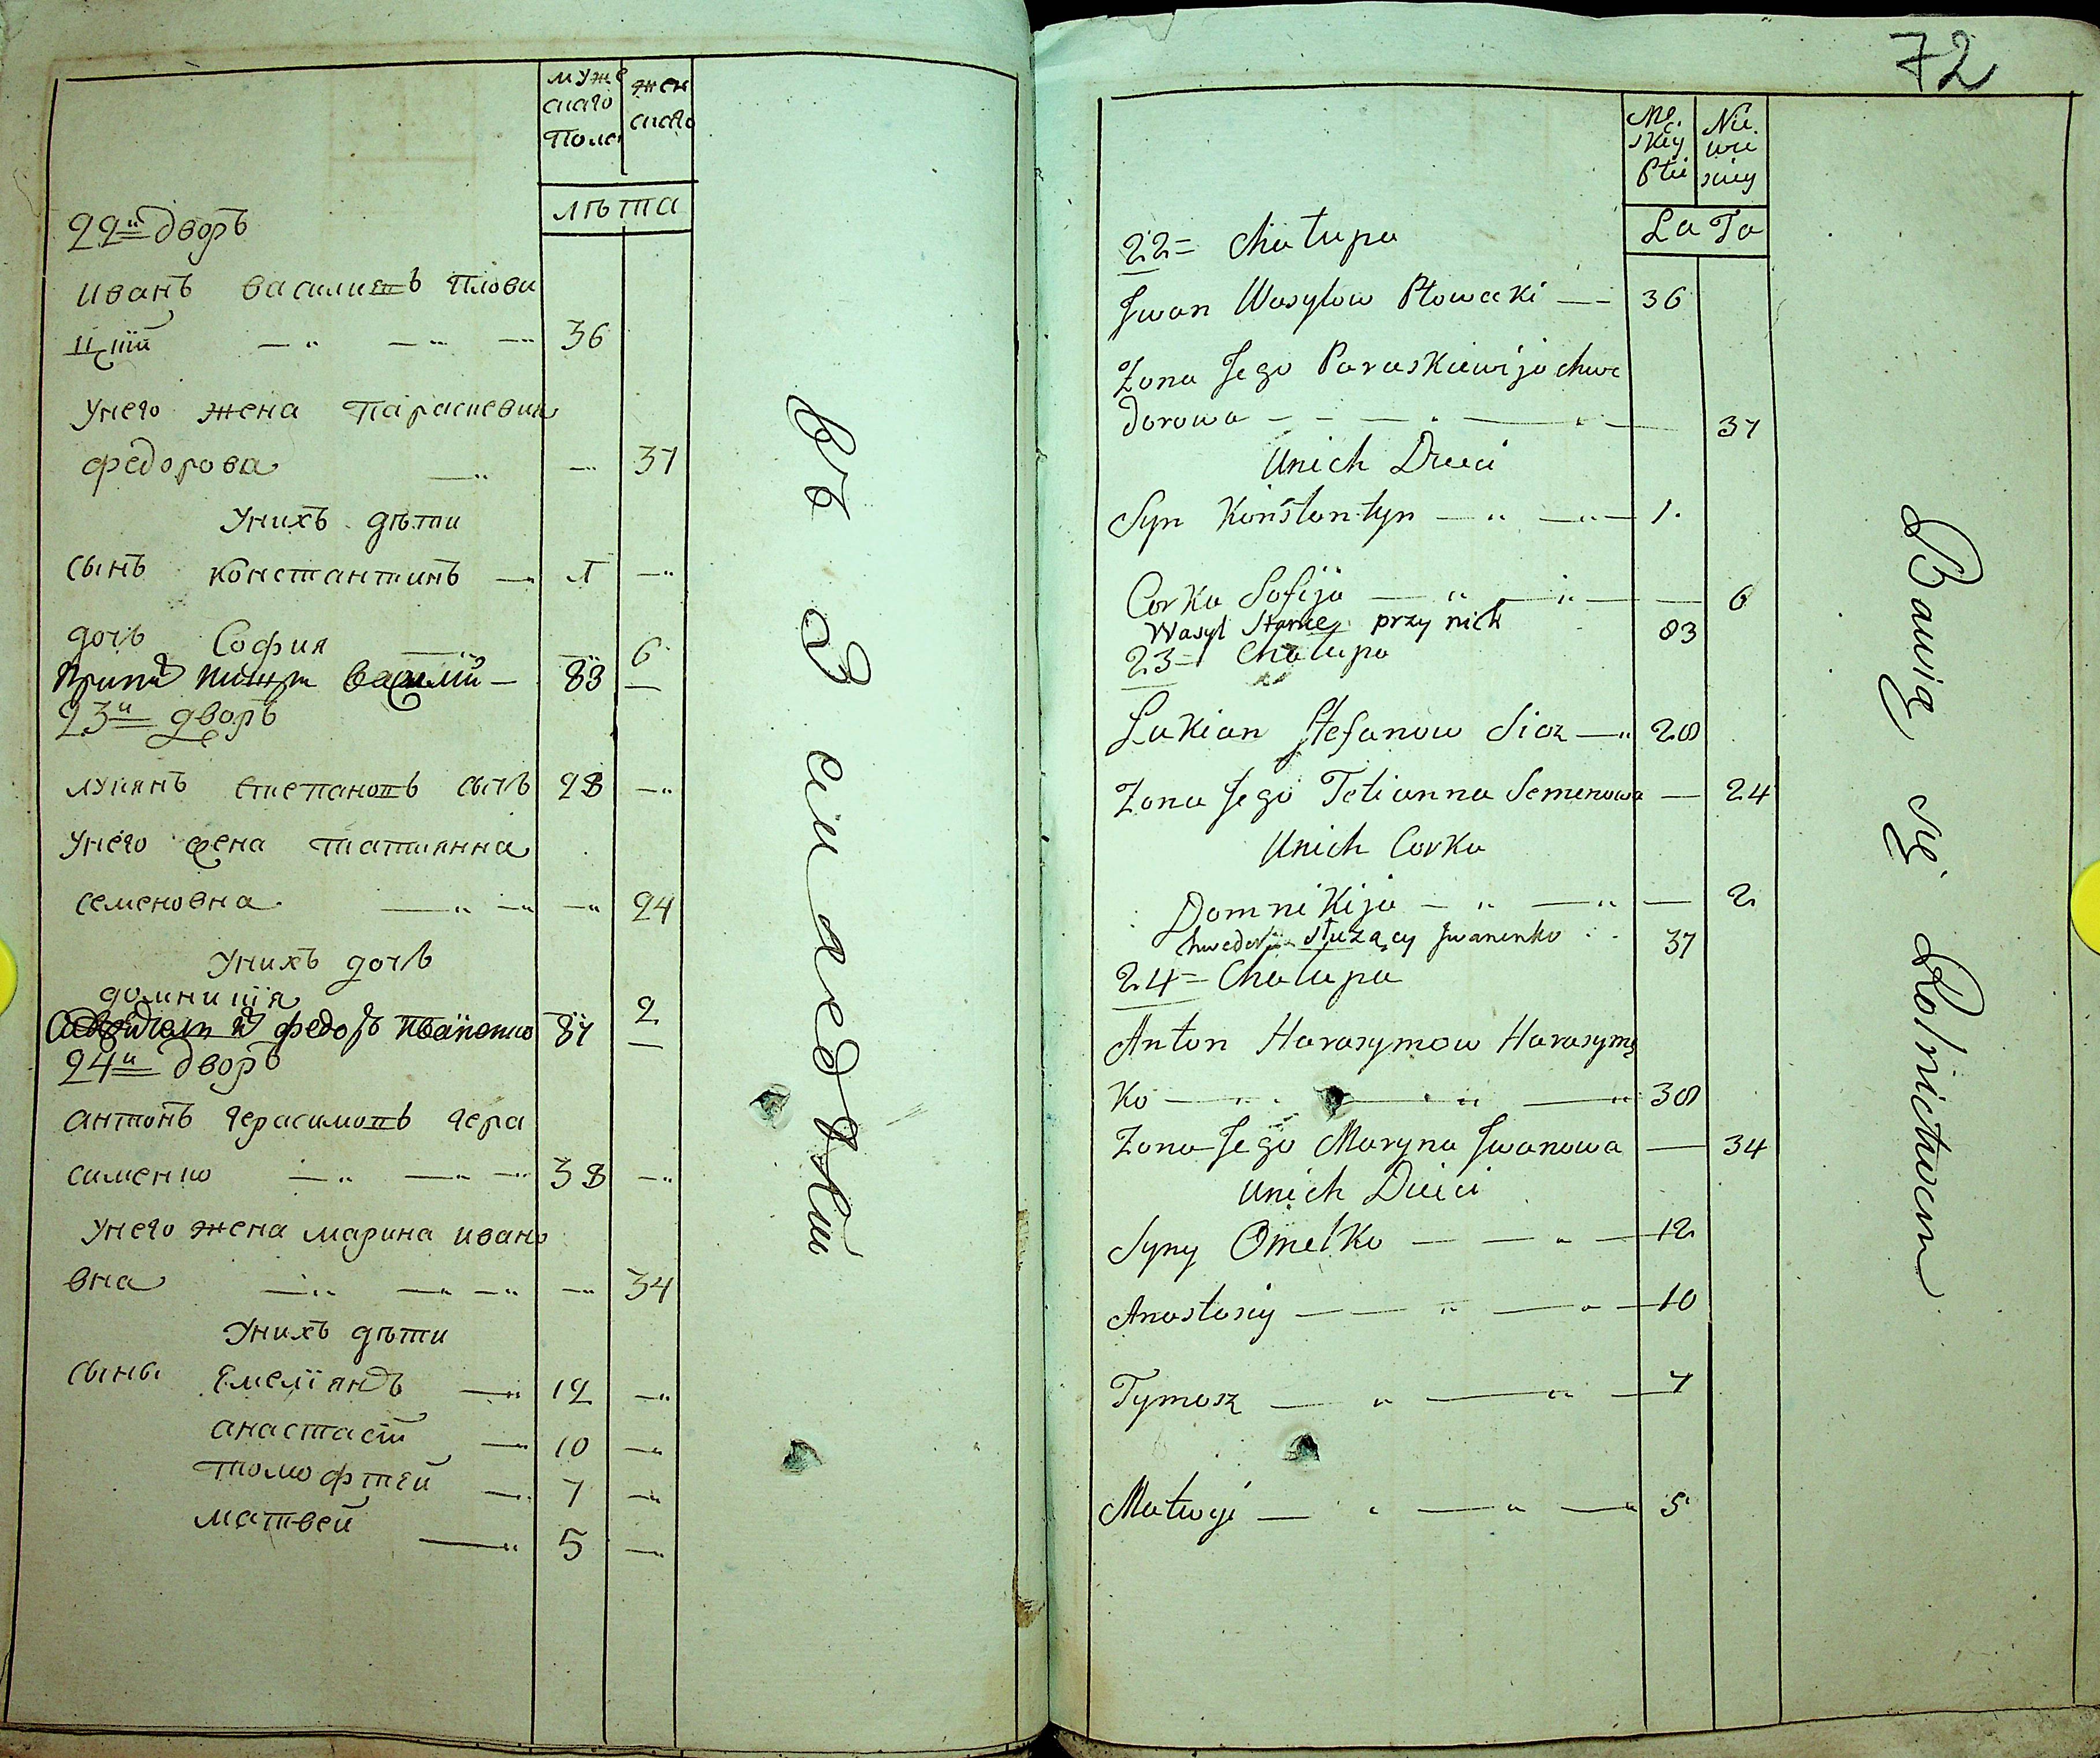 муже
скаго
Пола
жен
скаго
лѣта
22й дворъ
Иванъ василиевъ Плова
цкий 36
Унего жена Параскевия
федорова 37
Унихъ дѣти
сынъ константинъ 1
дочь София 6
василий 83
23й дворъ
лукянъ степановъ сычъ 28
Унего жена татиянна
семеновна 24
Унихъ дочь
домникія 2
федоръ иваненко 37
24й дворъ
антонъ герасимовъ гера
сименко 38
Унего жена марина ивано
вна 34
Унихъ дѣти
сыны Емелїянъ 12
анастасій 10
тимофтей 7
матвей 5
72
Mę.
skiy
Płci
Nie
wie
sciey
LaTa
22= Chałupa
Jwan Wasylow Płowacki 36
Zona Jego Paraskiewija chwe
dorowa 37
Unich Dzieci
Syn Konstontyn 1.
Corka Sofija 6
Wasyl Starzec przy nich 83
23= Chałupa
Łukian Stefanow Sicz 28
Zona Jego Tetianna Semenowa 24
Unich Corka
Domnikija 2
Chwedor służący Jwanenko 37
24= Chałupa
Anton Harasymow Harasymę
Ko 38
Zona Jego Maryna Jwanowa 34
Unich Dzieci
Syny Omelko 12
Anastasiy 10
Tymosz 7
Matwyi 5
Bawią się Rolnictwem